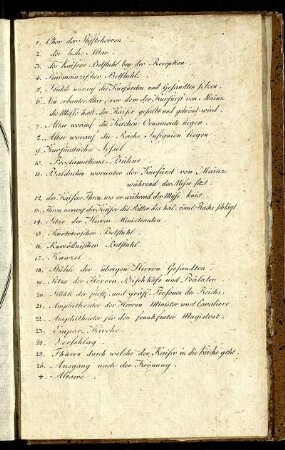 1. Chor der Stiftsherren
2. die hohe Altar
3. des Kaisers Betstuhl bey der Reception
4. Kurmainzischer Betstuhl.
5. Stühle worauf die Kurfürsten und Gesandten sitzen.
6. Ein erbauter Altar, vor dem der Kurfürst von Mainz
die Messe hält, der Kaiser gesalbt und gekrönt wird.
7. Altar worauf die Kirchen Ornamente liegen.
8. Altar worauf die Reichs Insignien liegen
9. Kurfürstliches
10. Proclamations Bühne
11. Baldachin worunter der Kurfürst von Mainz
während der Messe sitzt.
12. des Kaisers Thron, wo er während der Messe
13. Thron worauf der Kaiser die Ritter des heil. Röm. Reichs schlägt
14. Sitze der Herren Ministranten
15. Kurtrierscher Betstuhl
16. Kurcöllnischer Betstuhl
17. Kanzel
18. Stühle der übrigen Herren Gesandten
19. Sitze der Herren Bischöffe und Prälaten
20. Stühle der fürstl. und gräfl. Personen des Reichs.
21. Amphitheater der Herren Minister und Cavaliere
22. Amphitheater für den Frankfurter Magistrat.
23. Empor-Kirche
24. Verschlag
25. Thüren durch welche der Kaiser in die Kirche geht.
26. Ausgang nach der Krönung.
Altaere